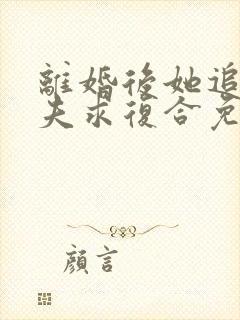 離婚後她追
夫求復合免
顏言